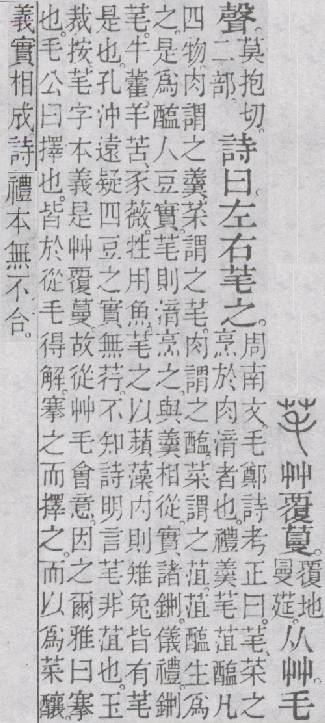 芼艸覆蔓。覆地曼莚。从艸。毛
聲。莫抱切。二部。詩曰左右芼之。周南文。毛鄭詩考正曰。芼、菜之烹於肉湇者也。禮羹芼菹醢凡
四物。肉謂之羹。菜謂之芼。肉謂之醢。菜謂之菹。菹醢生爲
之。是爲醢人豆實。芼則湇烹之。與羹相從。實諸鉶。儀禮鉶
芼。牛藿、羊苦、豕薇。牲用魚。芼之以蘋藻。內則雉兔皆有芼
是也。孔沖遠疑四豆之實無荇。不知詩明言芼非菹也。玉
裁按芼字本義是艸覆蔓。故從艸毛會意。因之爾雅曰搴
也。毛公曰擇也。皆於從毛得解。搴之而擇之。而以爲菜釀
義實相成。詩禮本無不合。